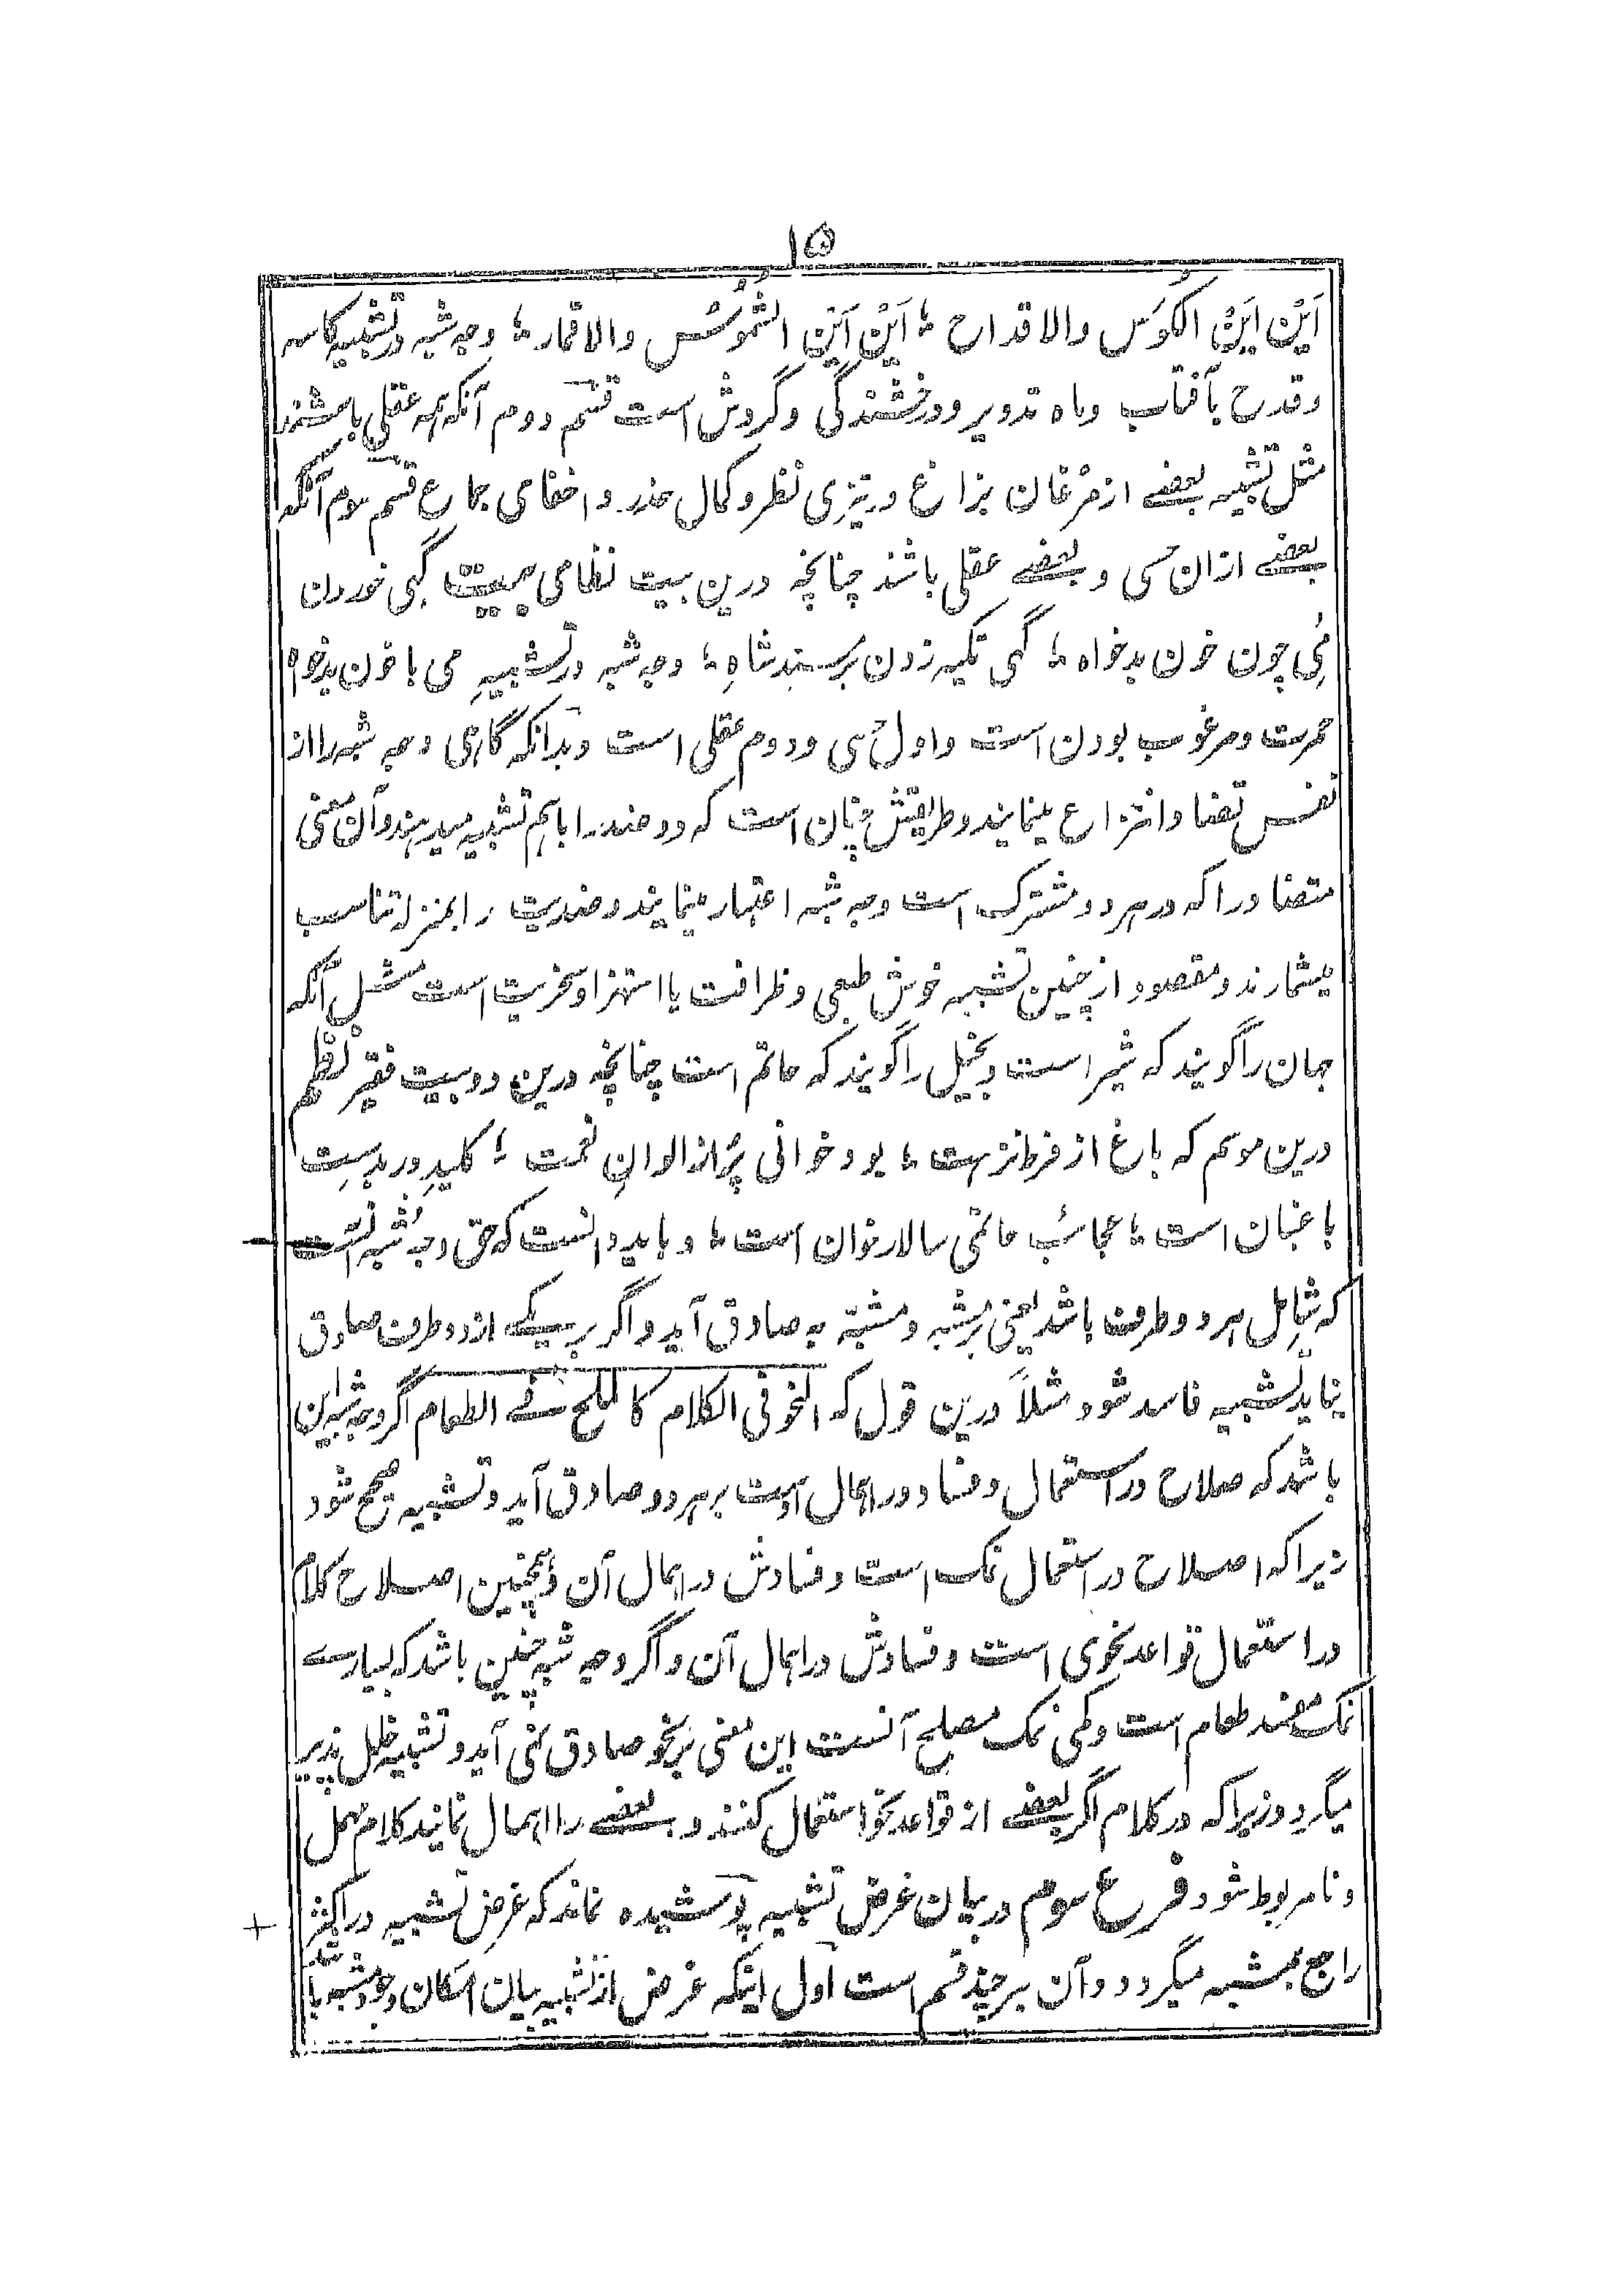 ۱۵
اَیْن اَیْنَ الکُوَس والاقداح ؛ اَیْن اَیْن الشُّمُوُس والاقمار ؛ وجه شبه در تشبیه کاسه
و قدح بآفتاب و ماه تدویر و درخشندگی و گردش است قسم دوم آنکه همه عقلی باشند
مثل تشبیه بعضے از مرغان بزاغ در تیزی نظر و کمال حذر و اخفای جماع قسم سوم آنکه
بعضے ازان حسی و بعضے عقلی باشند چنانچه درین بیت نظامی بیت گهی خوردن
مُیِ چون خون بدخواه ؛ گهی تکیه زدن بر مسند شاهِ ؛ وجه شبه در تشبیهِ می با خون بدخواه
حمرت و مرغوب بودن است و اول حسی و دوم عقلی است و بدانکه گاهی وجه شبه را از
نفس تضاد انتزاع مینمایند و طریقش چنان است که دو ضد را باهم تشبیه میدهند و آن معنی
متضاد را که در هر دو مشترک است وجه شبه اعتبار مینمایند و ضدیت را بمنزله تناسب
میشمارند و مقصود از چنین تشبیه خوش طبعی و ظرافت یا استهزا و سخریت است مثل آنکه
جبان را گویند که شیر است و بخیل را گویند که حاتم است چنانچه درین دو بیت فقیر نظم
درین موسم که باغ از فرط نزهت ؛ بود خوانی پُر از الوانِ نعمت ؛ کلیدِ در بدستِ
باغبان است ؛ عجائب حاتمی سالار خوان است ؛ و باید دانست که حق وجه شبه آنست
که شامِل هر دو طرف باشد یعنی بر مشبه و مشبّه به صادق آید و اگر بر یکے از دو طرف صادق
نیاید تشبیه فاسد شود مثلاً درین قول که النحو فی الکلام کالملح فے الطعام اگر وجه شبه این
باشد که صلاح در استعمال و فساد در اهمال اوست بر هر دو صادق آید و تشبیه صحیح شود
زیرا که اصلاح در استعمال نمک است و فسادش در اهمال آن و همچنین اصلاح کلام
در استعمال قواعد نحوی است و فسادش در اهمال آن و اگر وجه شبه چنین باشد که بسیارے
نمک مفسد طعام است و کمی نمک مصلح آنست این معنی بر نحو صادق نمی آید و تشبیه خلل پذیر
میگردد زیرا که در کلام اگر بعضے از قواعد نحو استعمال کنند و بعضے را اهمال نمایند کلام مهمل
و نامربوط شود فرع سوم در بیان غرض تشبیه پوشیده نماند که غرض تشبیه در اکثر
راجع بمشبه میگردد و آن بر چند قسم است اول اینکه غرض از تشبیه بیان امکان وجود مشبه باشد